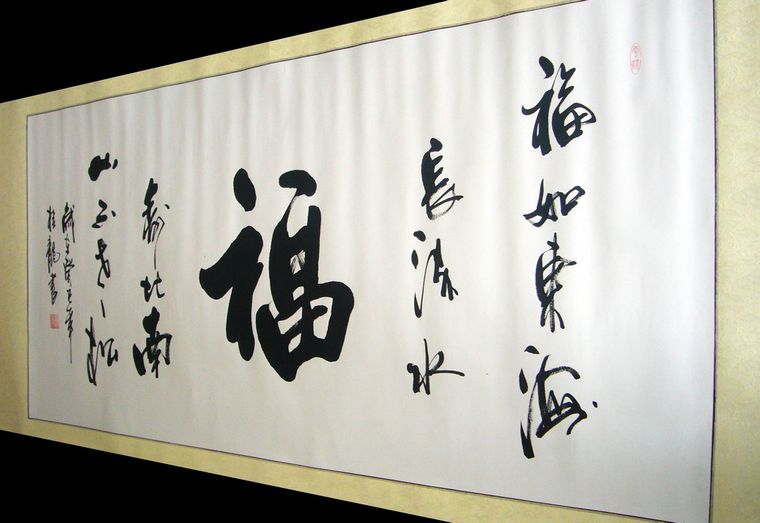 福如東海
長流水
福
壽比南
山不老松
龍書